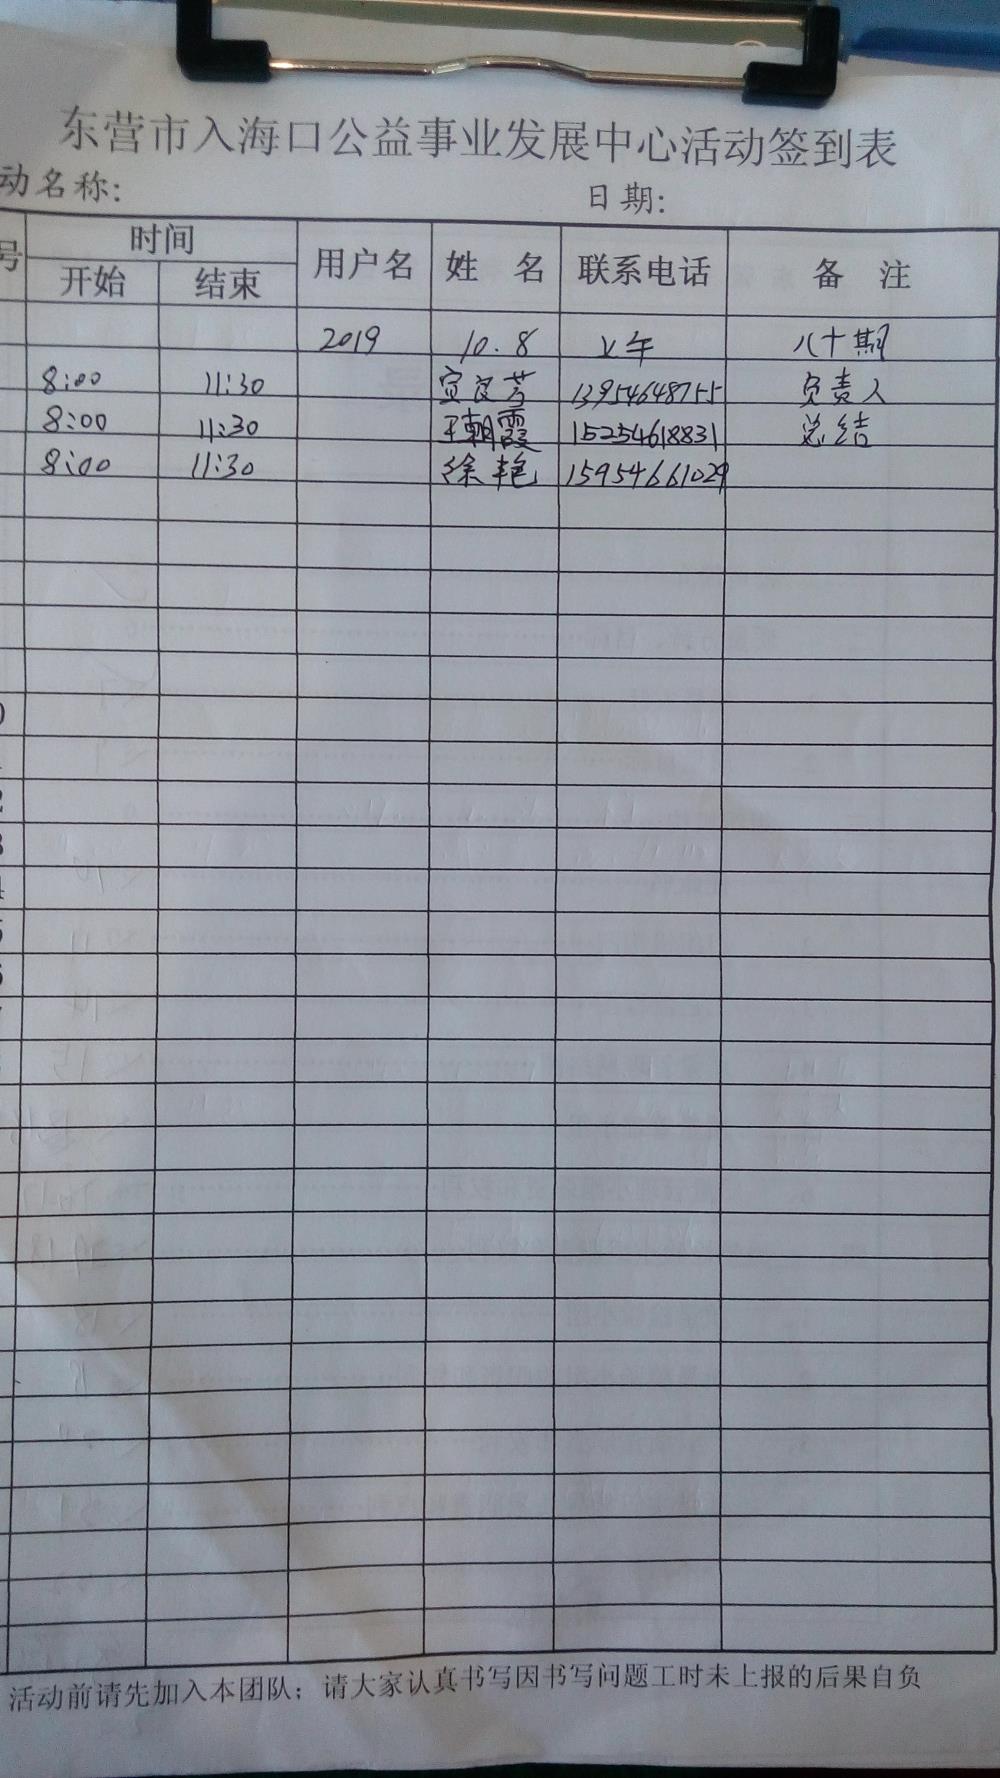 东营市入海口公益事业发展中心活动签到表
动名称: 日期:
号 时间 用户名 姓 名 联系电话 备 注
开始 结束
2019 10.8 上午 八十期
8:00 11:30 宣良芳 13954648755 负责人
8:00 11:30 王朝霞 15254618831 总结
8:00 11:30 徐艳 15954661029
0
2
3
4
5
6
7
活动前请先加入本团队；请大家认真书写因书写问题工时未上报的后果自负